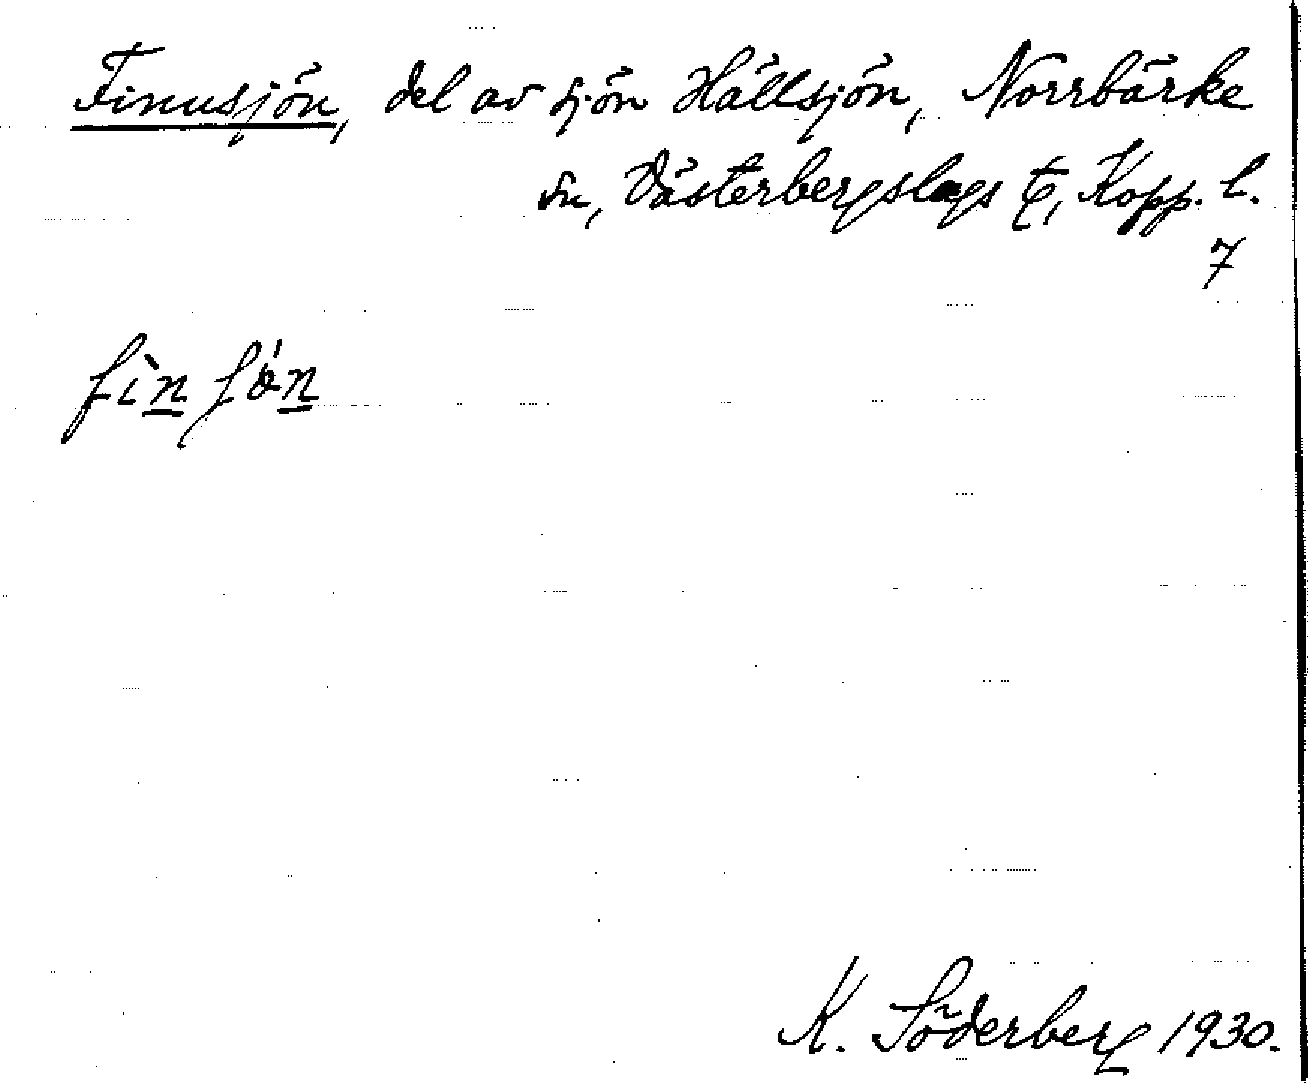 Finnsjön, del av sjön Hällsjön, Norrbärke
sn, Västerbergslags t, Kopp. l.
7
K. Söderberg 1930.